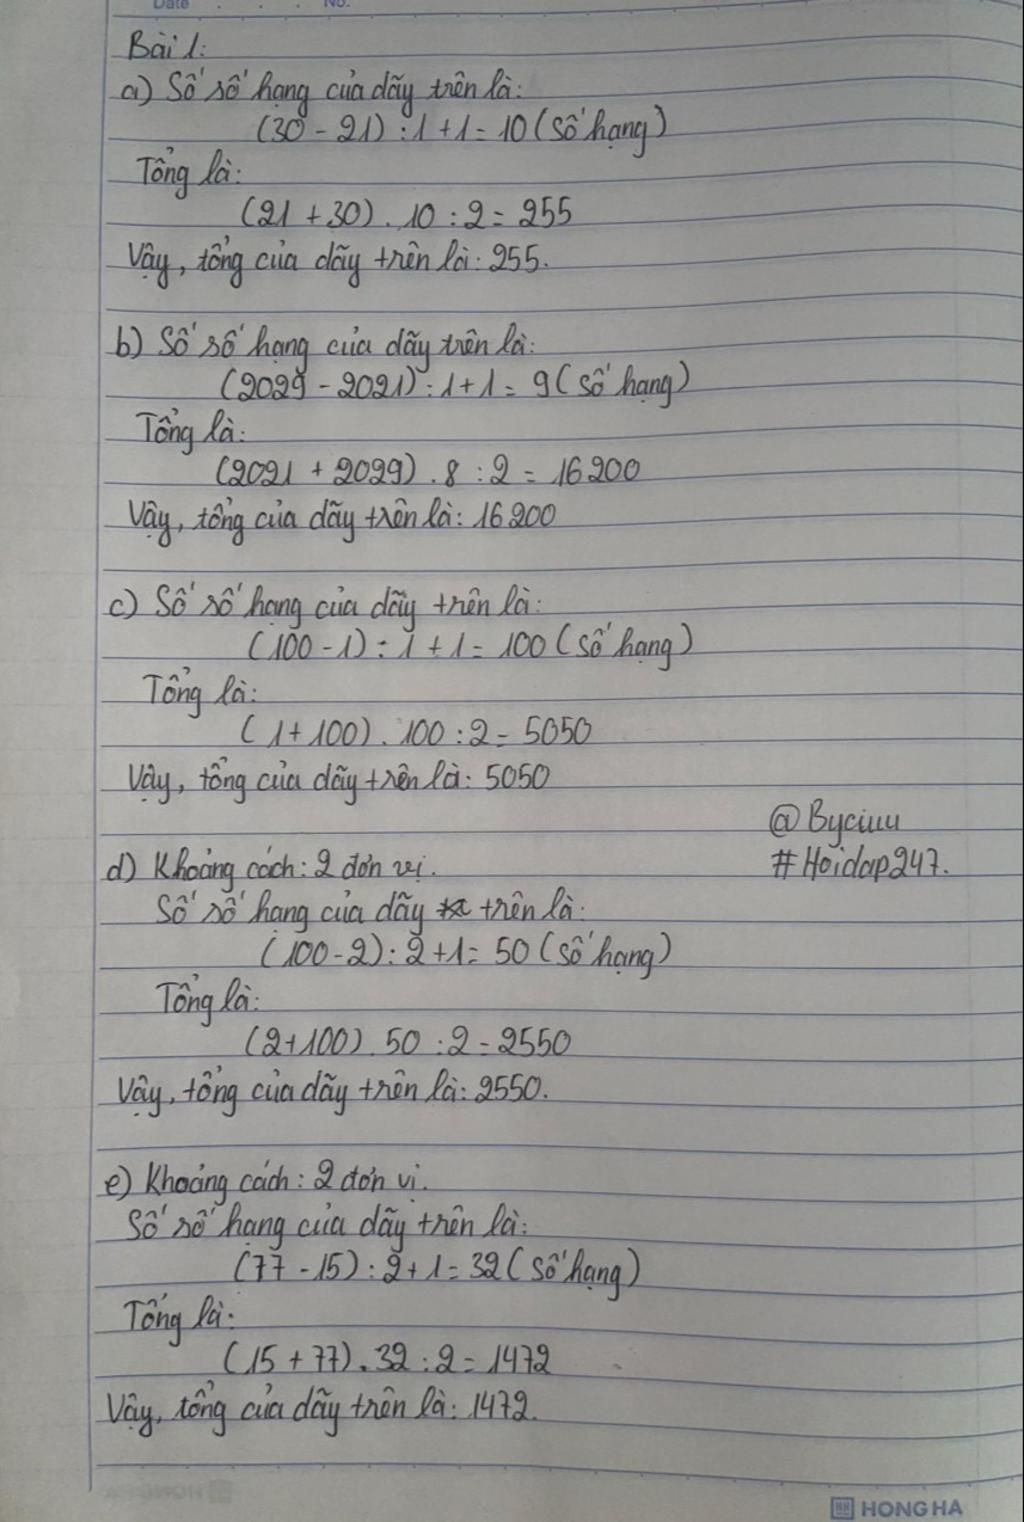 Date No.
Bài 1:
a) Số số hạng của dãy trên là:
(30 - 21) : 1 + 1 = 10 (số hạng)
Tổng là:
(21 + 30) . 10 : 2 = 255
Vậy, tổng của dãy trên là: 255.
b) Số số hạng của dãy trên là:
(2029 - 2021) : 1 + 1 = 9 (số hạng)
Tổng là:
(2021 + 2029) . 8 : 2 = 16 200
Vậy, tổng của dãy trên là: 16 200
c) Số số hạng của dãy trên là:
(100 - 1) : 1 + 1 = 100 (số hạng)
Tổng là:
(1 + 100) . 100 : 2 = 5050
Vậy, tổng của dãy trên là: 5050
@Byciuu
d) Khoảng cách: 2 đơn vị.
#Hoidap247.
Số số hạng của dãy trên là:
(100 - 2) : 2 + 1 = 50 (số hạng)
Tổng là:
(2 + 100) . 50 : 2 = 2550
Vậy, tổng của dãy trên là: 2550.
e) Khoảng cách: 2 đơn vị.
Số số hạng của dãy trên là:
(77 - 15) : 2 + 1 = 32 (số hạng)
Tổng là:
(15 + 77) . 32 : 2 = 1472
Vậy, tổng của dãy trên là: 1472.
HONG HA